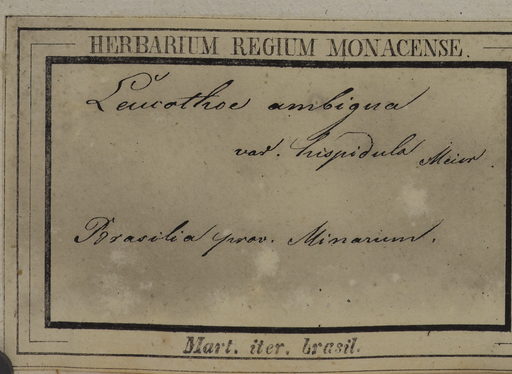 HERBARIUM REGIUM MONACENSE.
Leucothoe ambigua
var. hispidula Meisn.
Brasilia prov. Minarum.
Mart. iter. brasil.